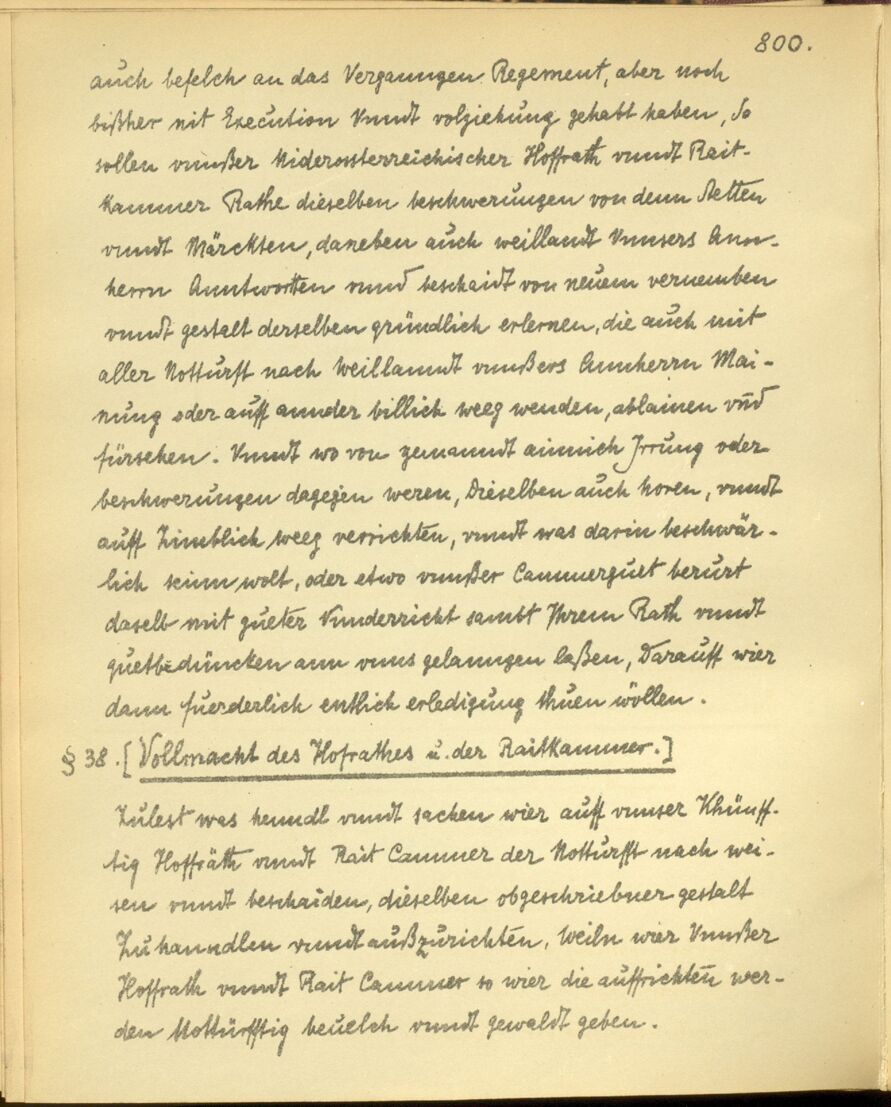 800.
auch befelch an das Vergangen Regement, aber noch
bißher nit Execution Vnndt volziehung gehabt haben, So
sollen vnnßer Niderossterreichischer Hoffrath vnndt Rait-
Kammer Rathe dieselben beschwerungen von denn Stetten
vnndt Märckten, daneben auch weillandt Vnnsers Ann-
herrn Anntwortten vnnd beschaidt von neuem vernemben
vnndt gestalt derselben gründlich erlernen, die auch mit
aller Notturft nach Weillanndt vnnßers Annherrn Mai-
nung oder auff annder billich weeg wenden, ablainen vnd
fürsehen. Vnndt wo von yemanndt ainnich Irrung oder
beschwerungen dagegen weren, Dieselben auch horen, vnndt
auff Zimblich weeg verrichten, vnndt was darin beschwär-
lich seinn wolt, oder etwo vnnßer Cammerguet berurt
daselb mit gueter Vnnderricht sambt Ihrem Rath vnndt
guetbedüncken ann vnns gelanngen laßen, Darauff wier
dann fuerderlich entlich erledigung thuen wöllen.
§ 38. [Vollmacht des Hofrathes u. der Raitkammer.]
Zulest was henndl vnndt sachen wier auff vnnser Khünff-
tig Hoffräth vnndt Rait Cammer der Notturfft nach wei-
sen vnndt beschaiden, dieselben obgeschriebner gestalt
Zu hanndlen vnndt außzurichten, Weiln wier Vnnßer
Hoffrath vnndt Rait Cammer so wier die auffrichten wer-
den Notturfftig beuelch vnndt gewaldt geben.